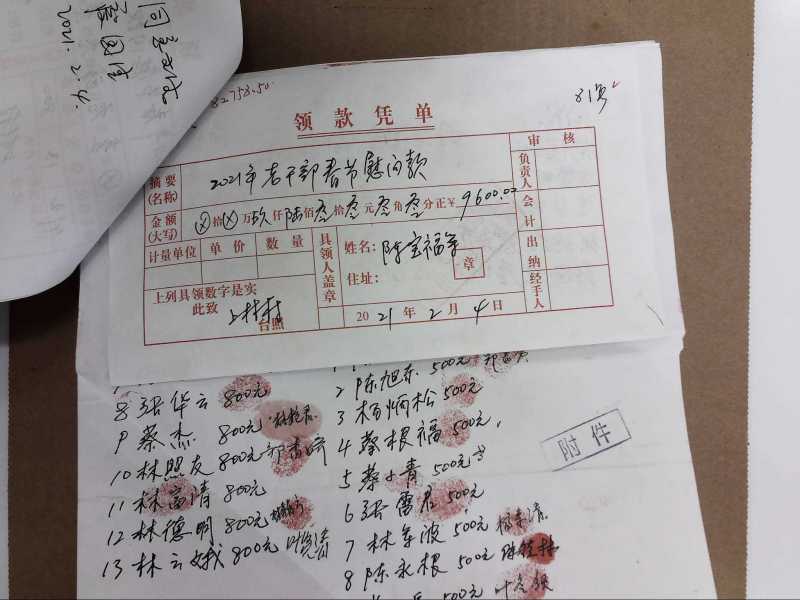 同意支付
2021.2.4.
82758.50
领款凭单
审核
摘要(名称) 2021年老干部春节慰问款
负责人
金额(大写) ⊗拾⊗万玖仟陆佰叁拾叁元叁角叁分正¥ 9600.00
会计
计量单位 单价 数量
具领人盖章
姓名: 陈宝福等
住址:
章
出纳
上列具领数字是实
此致
上林村
台照
2021年2月4日
经手人
8 张华云 800元
9 蔡杰 800元
10 林照友 800元
11 林富清 800元
12 林德明 800元
13 林云娥 800元
2 陈旭东 500元
3 柏炳松 500元
4 蔡根福 500元
5 蔡小青 500元
6 张雷君 500元
7 林年波 500元
8 陈永根 500元
500元
附件